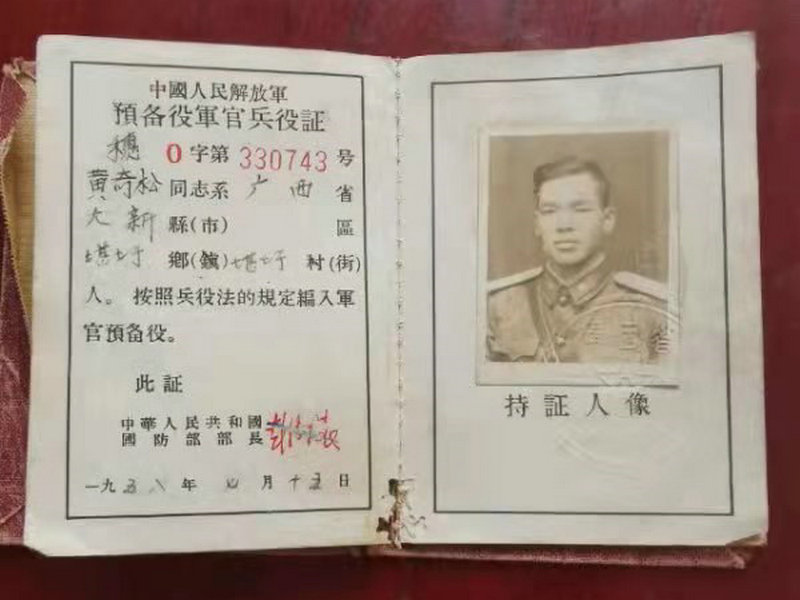 中國人民解放軍
預备役軍官兵役証
穗 0字第 330743 号
黄奇松 同志系 广西 省
大新 縣(市) 區
堪圩 鄉(鎮) 堪圩 村(街)
人。按照兵役法的規定編入軍
官預备役。
此証
中華人民共和國
國防部部長 彭德懷
一九五八年 七月十五日
持証人像